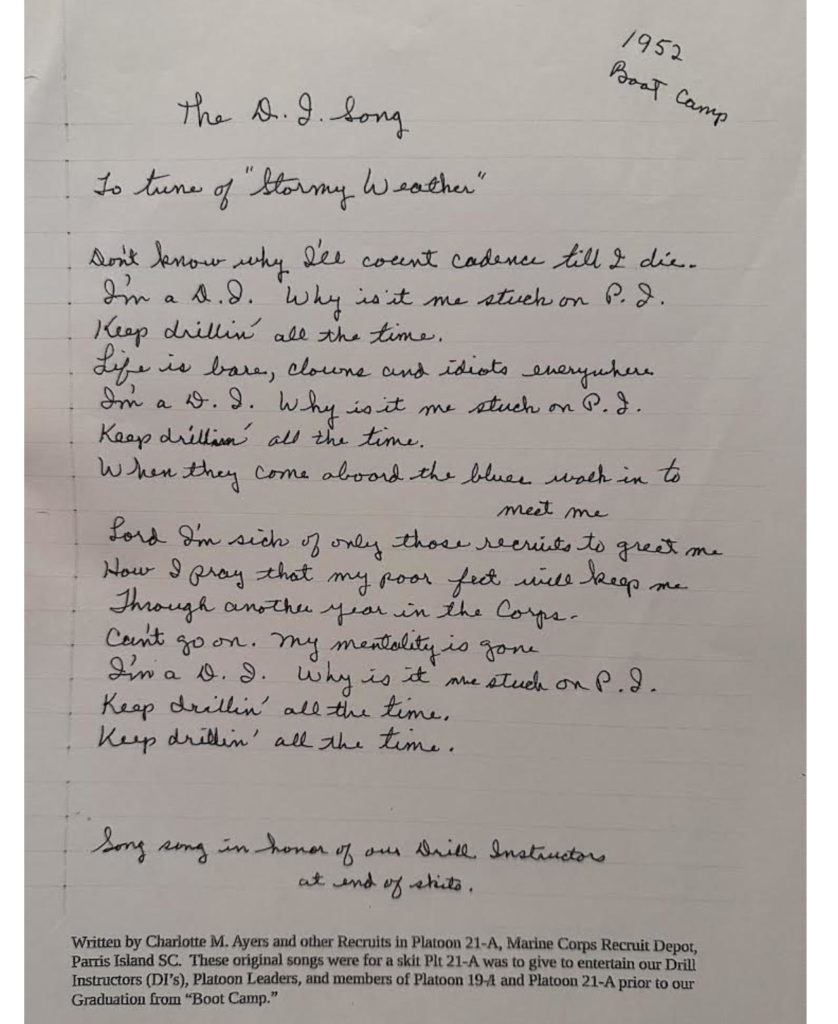 1952
Boot Camp
The D. I. Song
To tune of "Stormy Weather"
Don't know why I'll count cadence till I die.
I'm a D. I. Why is it me stuck on P. I.
Keep drillin' all the time.
Life is bare, clowns and idiots everywhere
I'm a D. I. Why is it me stuck on P. I.
Keep drillin' all the time.
When they come aboard the blues walk in to
meet me
Lord I'm sick of only those recruits to greet me
How I pray that my poor feet will keep me
Through another year in the Corps.
Can't go on. My mentality is gone
I'm a D. I. Why is it me stuck on P. I.
Keep drillin' all the time.
Keep drillin' all the time.
Song sung in honor of our Drill Instructors
at end of skits.
Written by Charlotte M. Ayers and other Recruits in Platoon 21-A, Marine Corps Recruit Depot,
Parris Island SC. These original songs were for a skit Plt 21-A was to give to entertain our Drill
Instructors (DI's), Platoon Leaders, and members of Platoon 19-A and Platoon 21-A prior to our
Graduation from "Boot Camp."